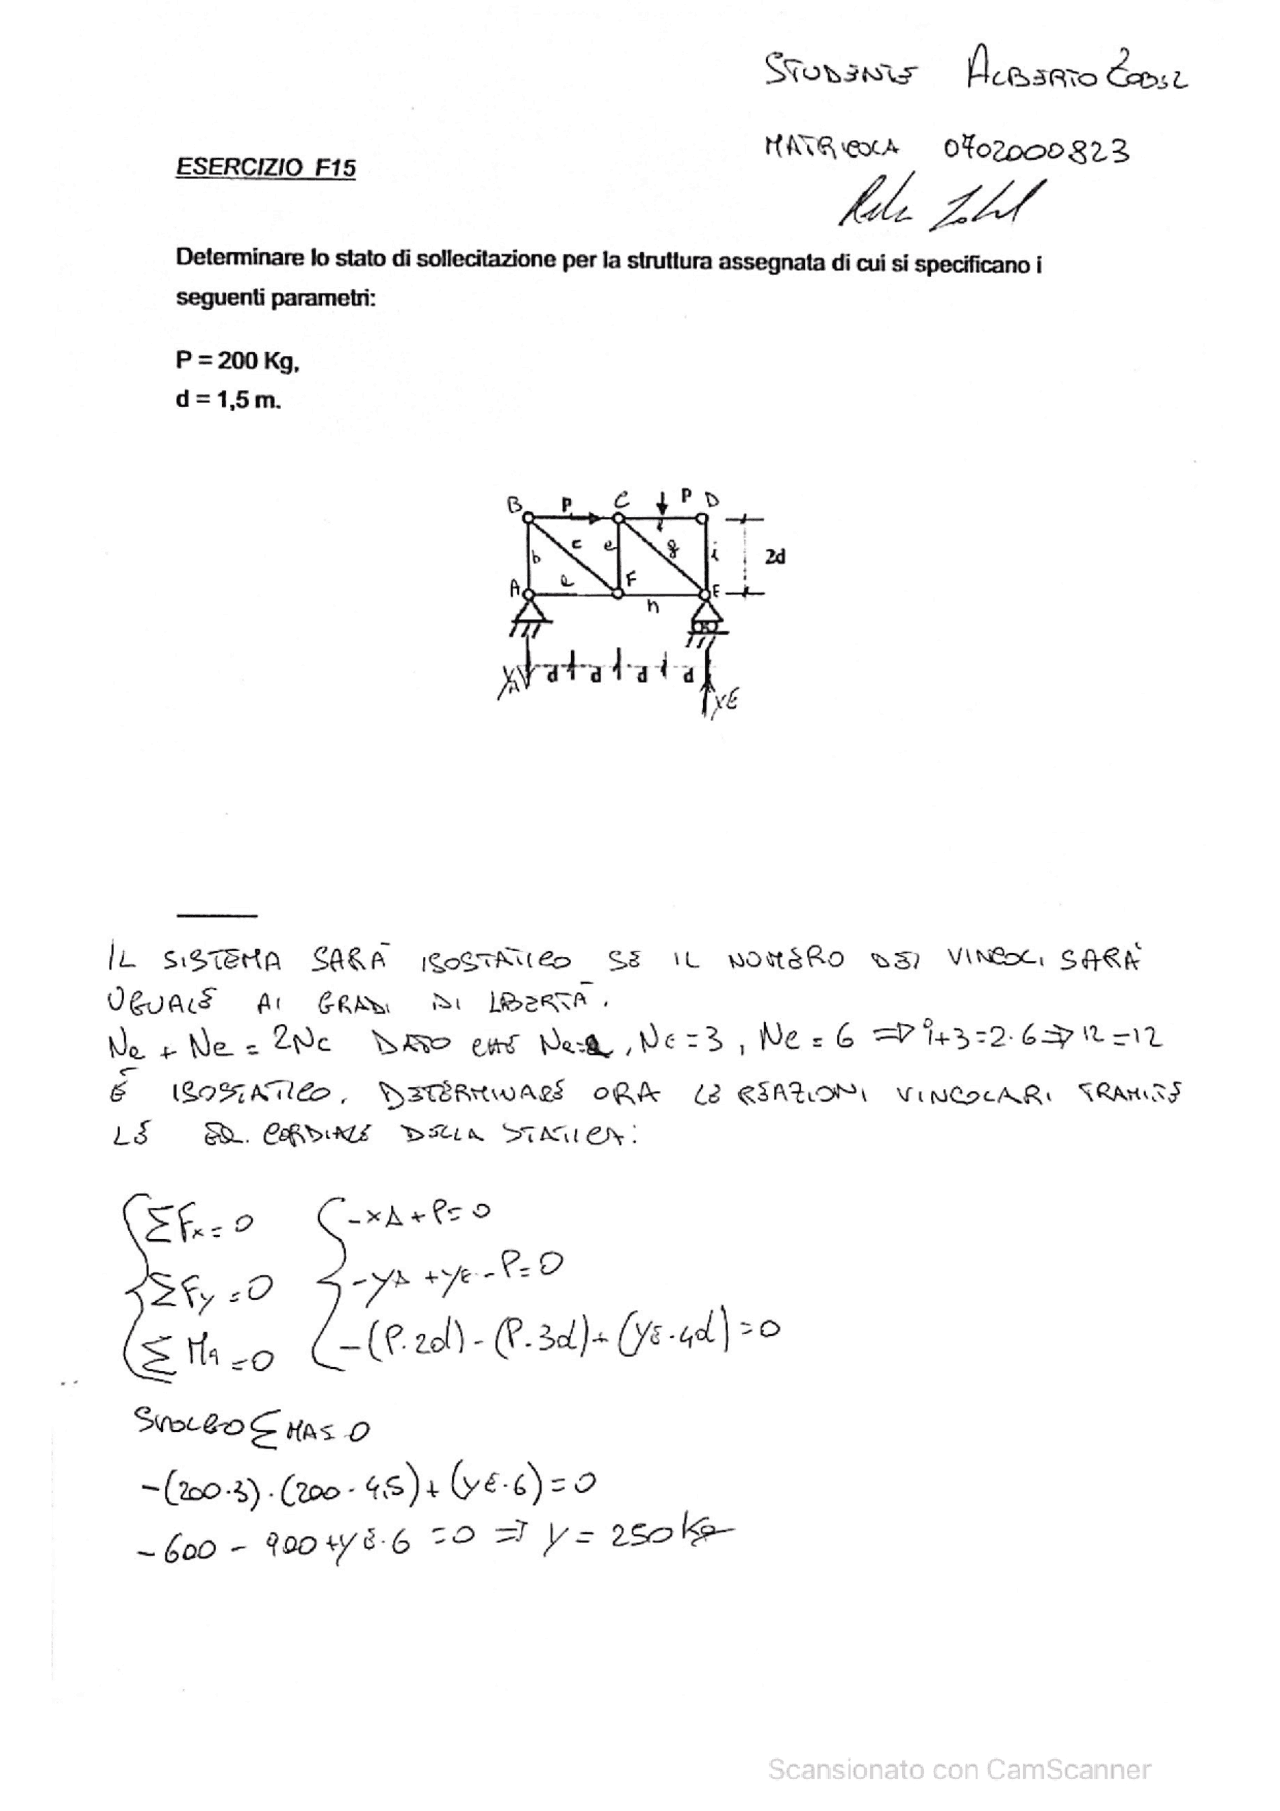 STUDENTE ALBERTO
MATRICOLA 0702000823
ESERCIZIO F15
Determinare lo stato di sollecitazione per la struttura assegnata di cui si specificano i
seguenti parametri:
P = 200 Kg,
d = 1,5 m.
B P C P D
b c e g i 2d
A F E
h
d d d d
YE
IL SISTEMA SARÀ ISOSTATICO SE IL NUMERO DEI VINCOLI SARÀ
UGUALE AI GRADI DI LIBERTÀ.
Na + Ne = 2Nc DATO CHE , Ne = 3, Nc = 6 => 9+3=2·6 => 12=12
È ISOSTATICO. DETERMINARE ORA LE REAZIONI VINCOLARI TRAMITE
LE EQ. CORDIALE DELLA STATICA:
ΣFx=0 -XA+P=0
ΣFy=0 -YA+YE-P=0
ΣMA=0 -(P·2d)-(P·3d)+(YE·4d)=0
SVOLGO ΣMA=0
-(200·3)·(200·4,5)+(YE·6)=0
-600-900+YE·6=0 => Y=250 Kg
Scansionato con CamScanner